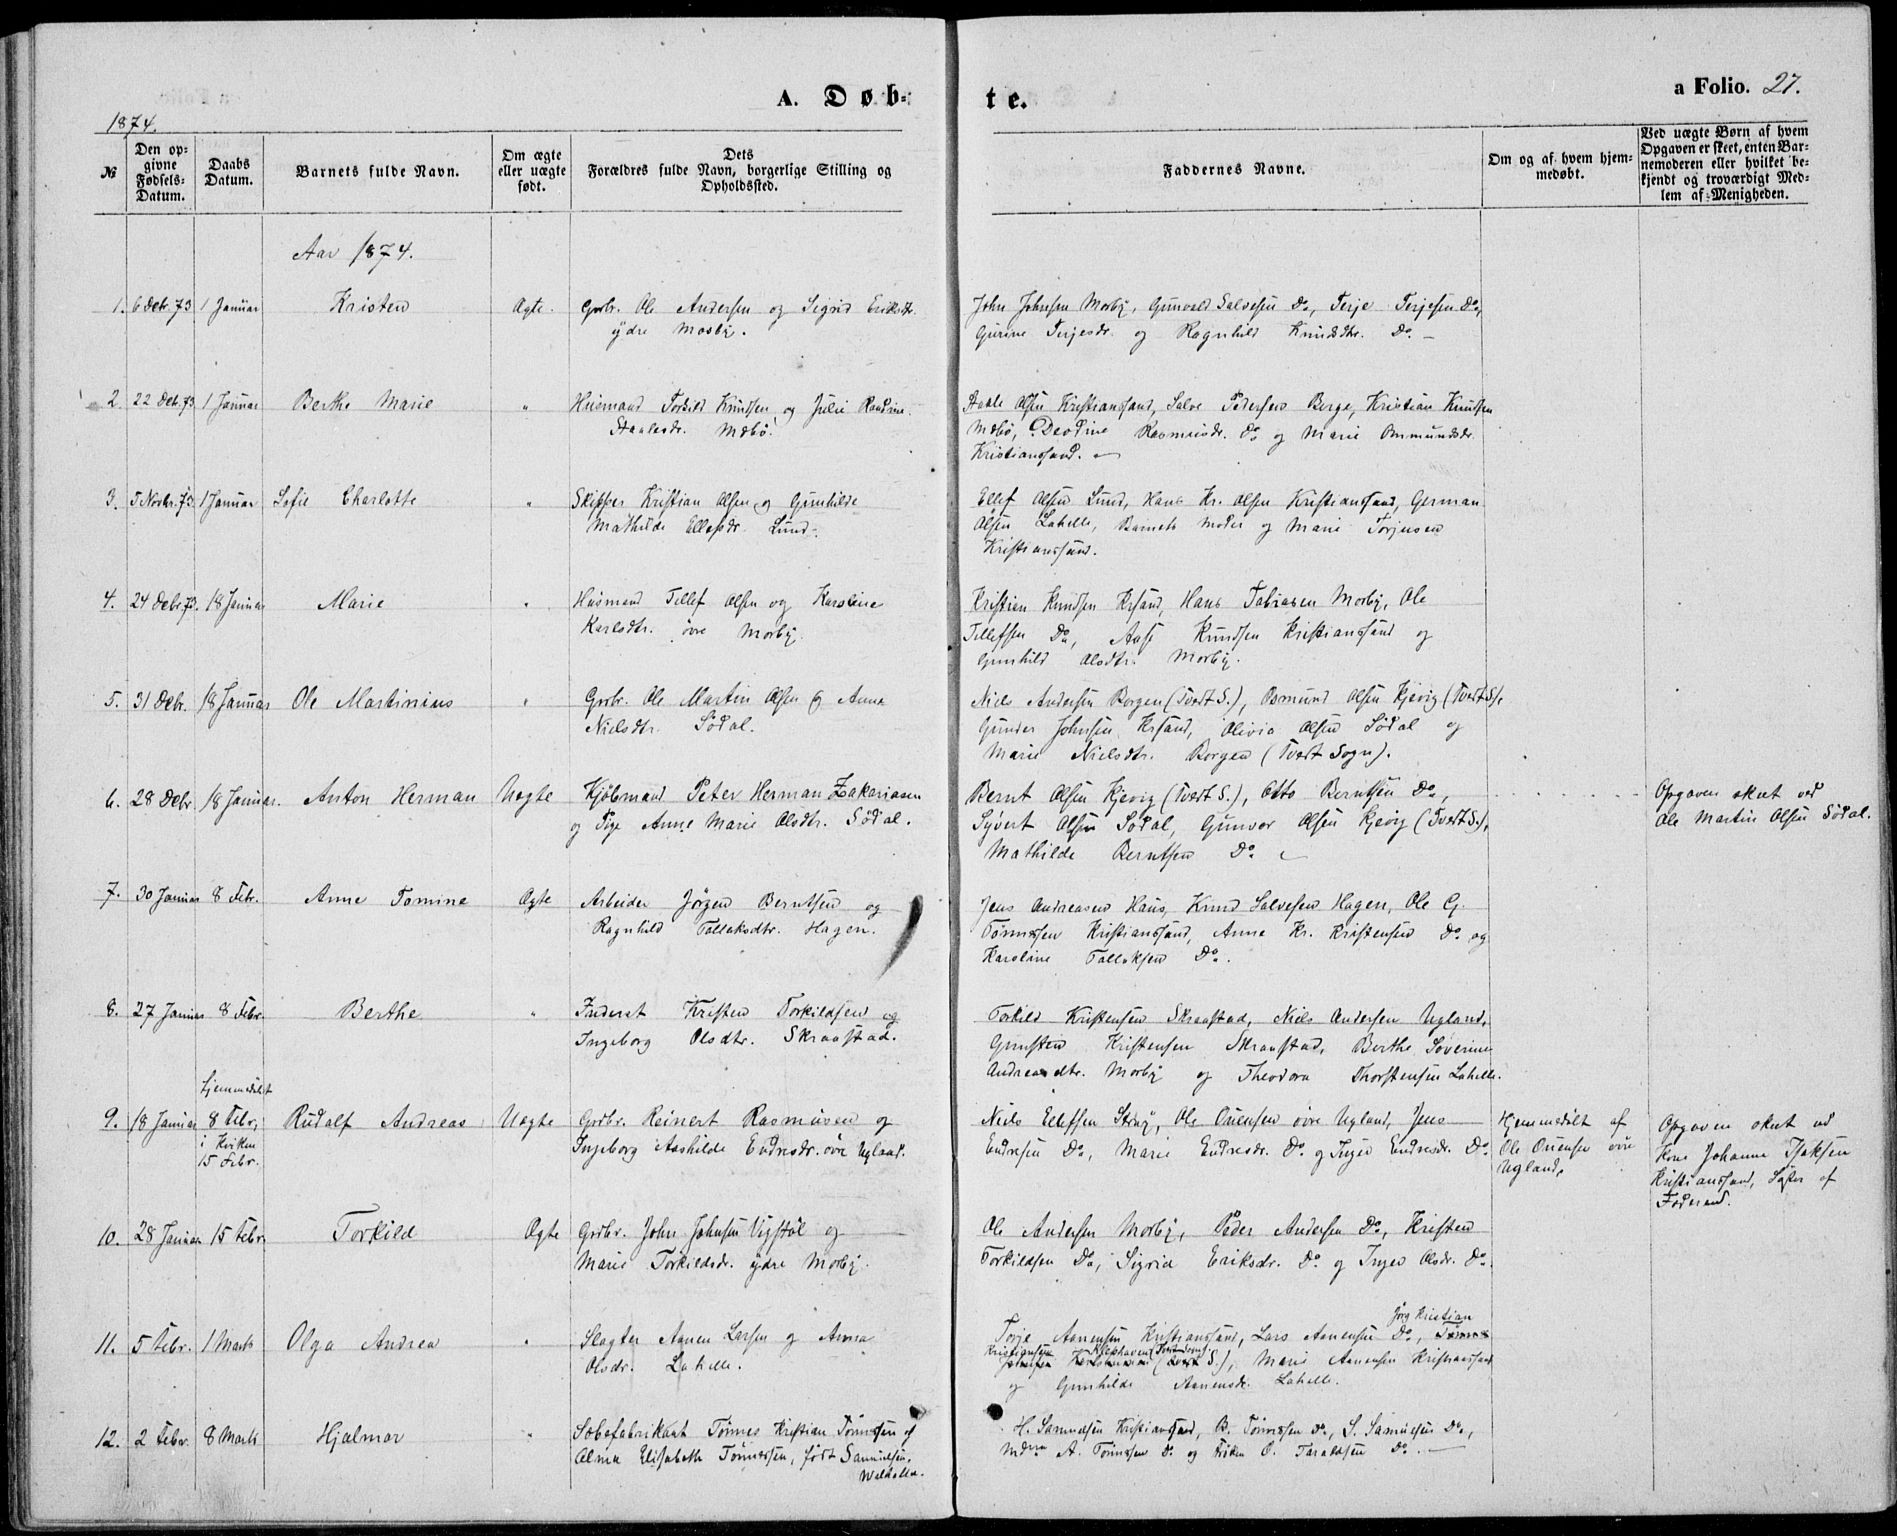 A. Døb-
te.
a Folio. 27.
1874.
№
Den op-
givne
Fødsels-
Datum.
Daabs
Datum.
Barnets fulde Navn.
Om ægte
eller uægte
født.
Dets
Forældres fulde Navn, borgerlige Stilling og
Opholdssted.
Faddernes Navne.
Om og af hvem hjem-
medøbt.
Ved uægte Børn af hvem
Opgaven er skeet, enten Bar-
nemoderen eller hvilket be-
kjendt og troværdigt Med-
lem af Menigheden.
Aar 1874.
1. 6 Debr. 73 1 Januar Kristen Ægte. Grbr. Ole Andersen og Sigrid Eriksdr.
ydre Mosby.
John Johnsen Mosby, Gunvald Salvesen Do, Terje Terjesen Do,
Gurine Terjesdr. og Ragnhild Knudsdtr. Do. —
2. 22 Debr. 73 1 Januar Berthe Marie " Huusmand Torkild Knudsen og Julie
Staalesdr. Mæbø.
Staale Olsen Kristianssand, Salve Pedersen Berge, Kristian Knudsen
Mæbø, Rasmusdr. Do og Marie Osmundsdr.
Kristianssand. —
3. 5 Novbr. 73. 1 Januar Sofie Charlotte " Skipper Kristian Olsen og Gunhilde
Mathilde Ellefsdr. Lund.
Ellef Olsen Lund, Hans Kr. Olsen Kristianssand, German
Olsen Lahelle, Barnets Moder og Marie Torjusen
Kristianssand.
4. 24 Debr. 73. 18 Januar Marie " Husmand Tellef Olsen og Karoline
Karlsdtr. øvre Mosby.
Kristian Knudsen Krsand, Hans Tobiasen Mosby, Ole
Tellefsen Do, Aase Knudsen Kristianssand og
Gunhild Olsdtr. Mosby.
5. 31 Debr. 18 Januar Ole Martinius " Grbr. Ole Martin Olsen og Anne
Nielsdtr. Sødal.
Niels Andersen Borgen (Tvedt S.), Osmund Olsen Kjevig (Tvedt S.),
Gunder Johnsen Krsand, Olivia Olsen Sødal og
Marie Nielsdtr. Borgen (Tvedt Sogn).
6. 28 Debr. 18 Januar. Anton Herman Uægte Kjøbmand Peter Herman Zakariasen
og Pige Anne Marie Olsdtr. Sødal.
Bernt Olsen Kjevig (Tvedt S.), Otto Berntsen Do,
Syvert Olsen Sødal, Gunvor Olsen Kjevig (Tvedt S.),
Mathilde Berntsen Do. —
Opgaven skeet ved
Ole Martin Olsen Sødal.
7. 30 Januar 8 Febr. Anne Tomine Ægte Arbeider Jørgen Berntsen og
Ragnhild Tallaksdtr. Hagen.
Jens Andreasen Haus, Knud Salvesen Hagen, Ole G.
Tønnessen Kristianssand, Anne Kr. Kristensen Do. og
Karoline Tallaksen Do.
8. 27 Januar 8 Febr. Berthe " Inderst Kristen Torkildsen og
Ingeborg Olsdtr. Skraastad.
Torkild Kristensen Skraastad, Niels Andersen Ugland,
Gunsten Kristensen Skraastad, Berthe Severine
Andreasdtr. Mosby og Theodora Thorstensen Lahelle.
9. 18 Januar
hjemmedøbt
8 Febr,
i Kirken
15 Febr.
Rudolf Andreas Uægte Grdbr. Reinert Rasmusen og
Ingeborg Aashilde Endresdr. øvre Ugland.
Niels Ellefsen Strai, Ole Ouensen øvre Ugland, Jens
Endresen Do, Marie Endresdr. Do. og Inger Endresdr. Do.
Hjemmedøbt af
Ole Ouensen øvre
Ugland.
Opgaven skeet ved
Kone Johanne Isaksen
Kristianssand, Søster af
Føderend.
10. 28 Januar 15 Febr. Torkild Ægte Grdbr. John Johnsen Vigstøl og
Marie Torkildsdr. ydre Mosby.
Ole Andersen Mosby, Peder Andersen Do, Kristen
Torkildsen Do, Sigrid Eriksdr. Do. og Inger Olsdr. Do.
11. 5 Febr. 1 Marts Olga Andrea " Slagter Aanen Larsen og Anna
Olsdr. Lahelle.
Jørg Kristian
Terje Aanensen Kristianssand, Lars Aanensen Do,
Kristiansen (Tvedt S.), Marie Aanensen Kristianssand
og Gunhilde Aanensdr. Lahelle.
12. 2 Febr. 8 Marts Hjalmar " Sæbefabrikant Tønnes Kristian Tønnessen og
Alma Elisabeth Tønnessen, født Samuelsen,
Walhalla.
H. Samuelsen Kristianssand, B. Tønnessen Do, S. Samuelsen Do,
A. Tønnessen Do og Frøken O. Taraldsen Do. —